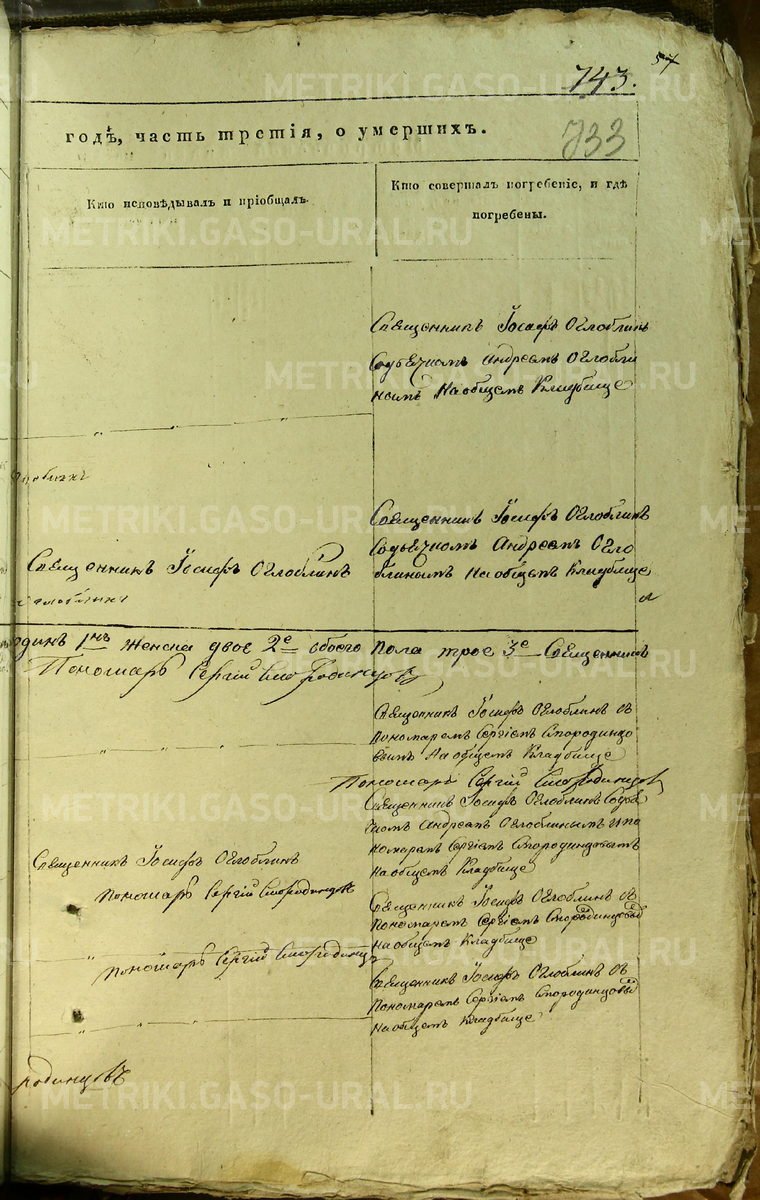 57
743.
733
годѣ, часть третія, о умершихъ.
Кто исповѣдывалъ и пріобщалъ.
Кто совершалъ погребеніе, и гдѣ
погребены.
Священникъ Іосифъ Оглоблинъ
Содьячкомъ Андреемъ Оглобли
нымъ На общемъ Кладбище
Оглоблинъ
Священникъ Іосифъ Оглоблинъ
Содьячкомъ Андреемъ Огло
блинымъ На общемъ Кладбище
Священникъ Іосифъ Оглоблинъ
одинъ 1нъ женска двое 2е обоего Пола трое 3е Священникъ
Пономарь Сергій Смородинцовъ
Священникъ Іосифъ Оглоблинъ съ
Пономаремъ Сергіемъ Смородинцо
вымъ На общемъ Кладбище
Пономарь Сергій Смородинцовъ
Священникъ Іосифъ Оглоблинъ Содья
чкомъ Андреемъ Оглоблинымъ и по
номаремъ Сергіемъ Смородинцовымъ
на общемъ Кладбище
Священникъ Іосифъ Оглоблинъ
Пономарь Сергій Смородинцовъ
Священникъ Іосифъ Оглоблинъ съ
Пономаремъ Сергіемъ Смородинцовый
на общемъ Кладбище
Пономарь Сергій Смородинцовъ
Священникъ Іосифъ Оглоблинъ съ
Пономаремъ Сергіемъ Смородинцовый
на общемъ Кладбище
родинцовъ
METRIKI.GASO-URAL.RU